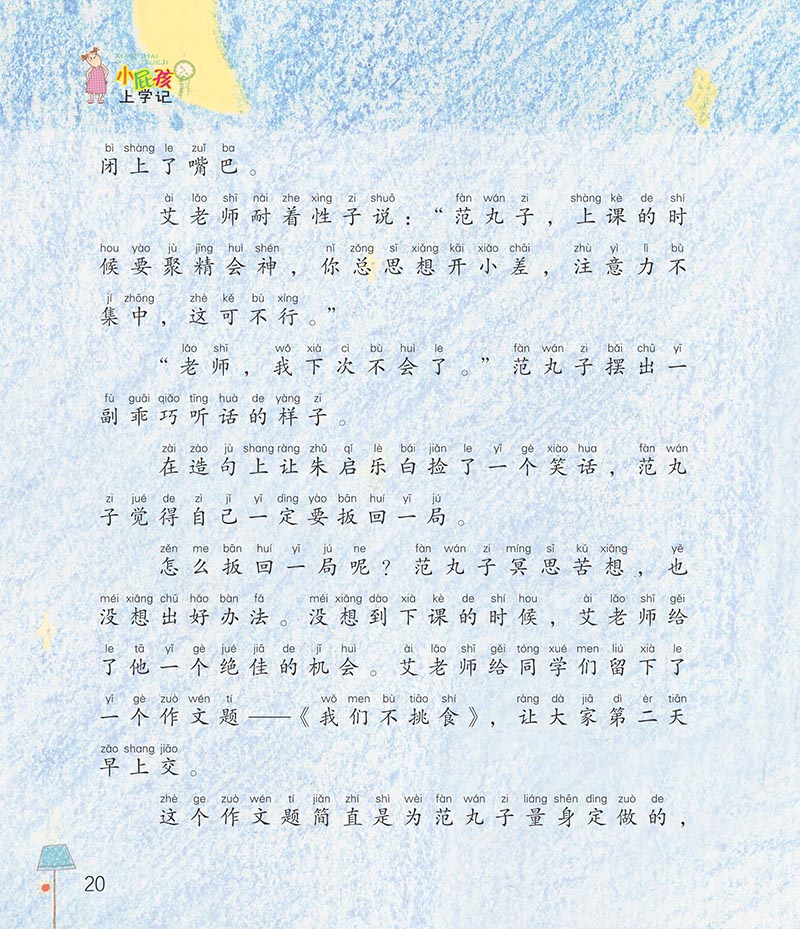 XIAOPIHAI
XUEJI
小屁孩
上学记
bì shàng le zuǐ ba
闭上了嘴巴。
ài lǎo shī nài zhe xìng zi shuō fàn wán zi shàng kè de shí
艾老师耐着性子说：“范丸子，上课的时
hou yào jù jīng huì shén nǐ zǒng sī xiǎng kāi xiǎo chāi zhù yì lì bù
候要聚精会神，你总思想开小差，注意力不
jí zhōng zhè kě bù xíng
集中，这可不行。”
lǎo shī wǒ xià cì bù huì le fàn wán zi bǎi chū yī
“老师，我下次不会了。”范丸子摆出一
fù guāi qiǎo tīng huà de yàng zi
副乖巧听话的样子。
zài zào jù shang ràng zhū qǐ lè bái jiǎn le yī gè xiào hua fàn wán
在造句上让朱启乐白捡了一个笑话，范丸
zi jué de zì jǐ yī dìng yào bān huí yī jú
子觉得自己一定要扳回一局。
zěn me bān huí yī jú ne fàn wán zi míng sī kǔ xiǎng yě
怎么扳回一局呢？范丸子冥思苦想，也
méi xiǎng chū hǎo bàn fǎ méi xiǎng dào xià kè de shí hou ài lǎo shī gěi
没想出好办法。没想到下课的时候，艾老师给
le tā yī gè jué jiā de jī huì ài lǎo shī gěi tóng xué men liú xià le
了他一个绝佳的机会。艾老师给同学们留下了
yī gè zuò wén tí wǒ men bù tiāo shí ràng dà jiā dì èr tiān
一个作文题——《我们不挑食》，让大家第二天
zǎo shang jiāo
早上交。
zhè ge zuò wén tí jiǎn zhí shì wèi fàn wán zi liáng shēn dìng zuò de
这个作文题简直是为范丸子量身定做的，
20